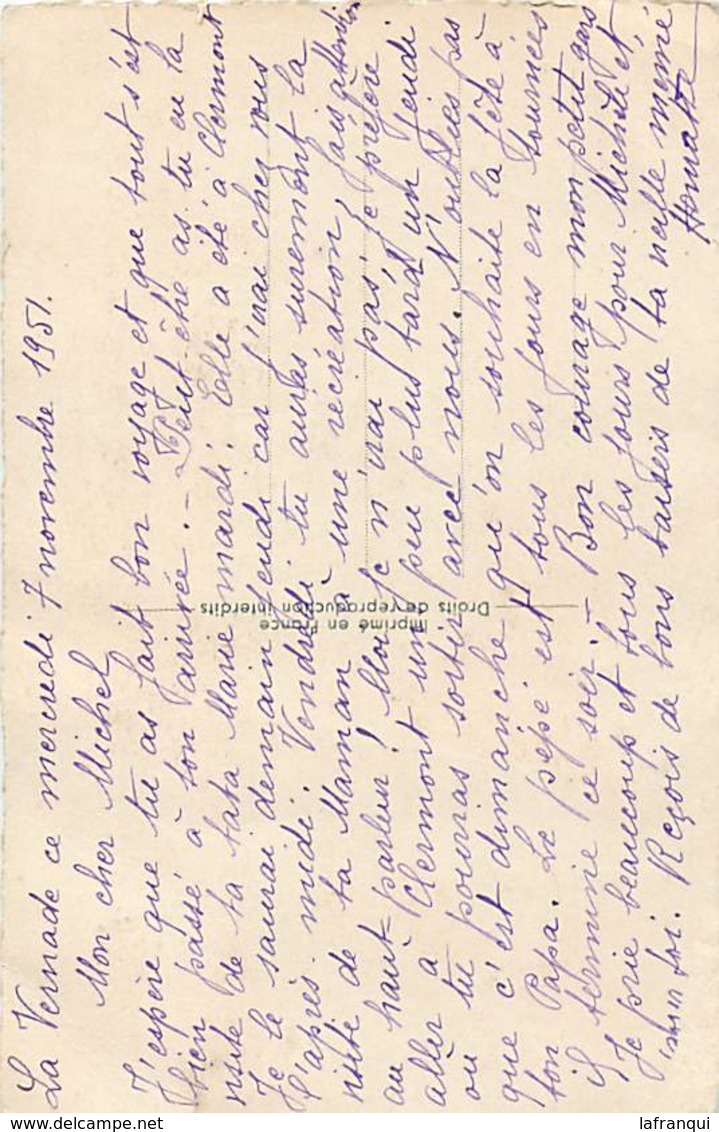 La Vernade ce mercredi 7 novembre 1951.
Mon cher Michel
J'espère que tu as fait bon voyage et que tout s'est
bien passé à ton arrivée. - Peut être as tu eu la
visite de ta tata Marie mardi. Elle a été à Clermont
Je le saurai demain jeudi car j'irai chez vous
l'après midi. Vendredi tu auras surement la
visite de ta Maman à une récréation, fais attention
au haut-parleur! Moi je n'irai pas, je préfère
aller à Clermont un peu plus tard un jeudi
ou tu pourras sortir avec nous. N'oublies pas
que c'est dimanche qu'on souhaite la fête à
ton Papa. Le pépé est tous les jours en tournées
il termine ce soir. - Bon courage mon petit gars
Je prie beaucoup et tous les jours pour Michèle et
pour toi. Reçois de bons baisers de ta vieille mémé
Imprimé en France
Droits de reproduction interdits
lafranqui